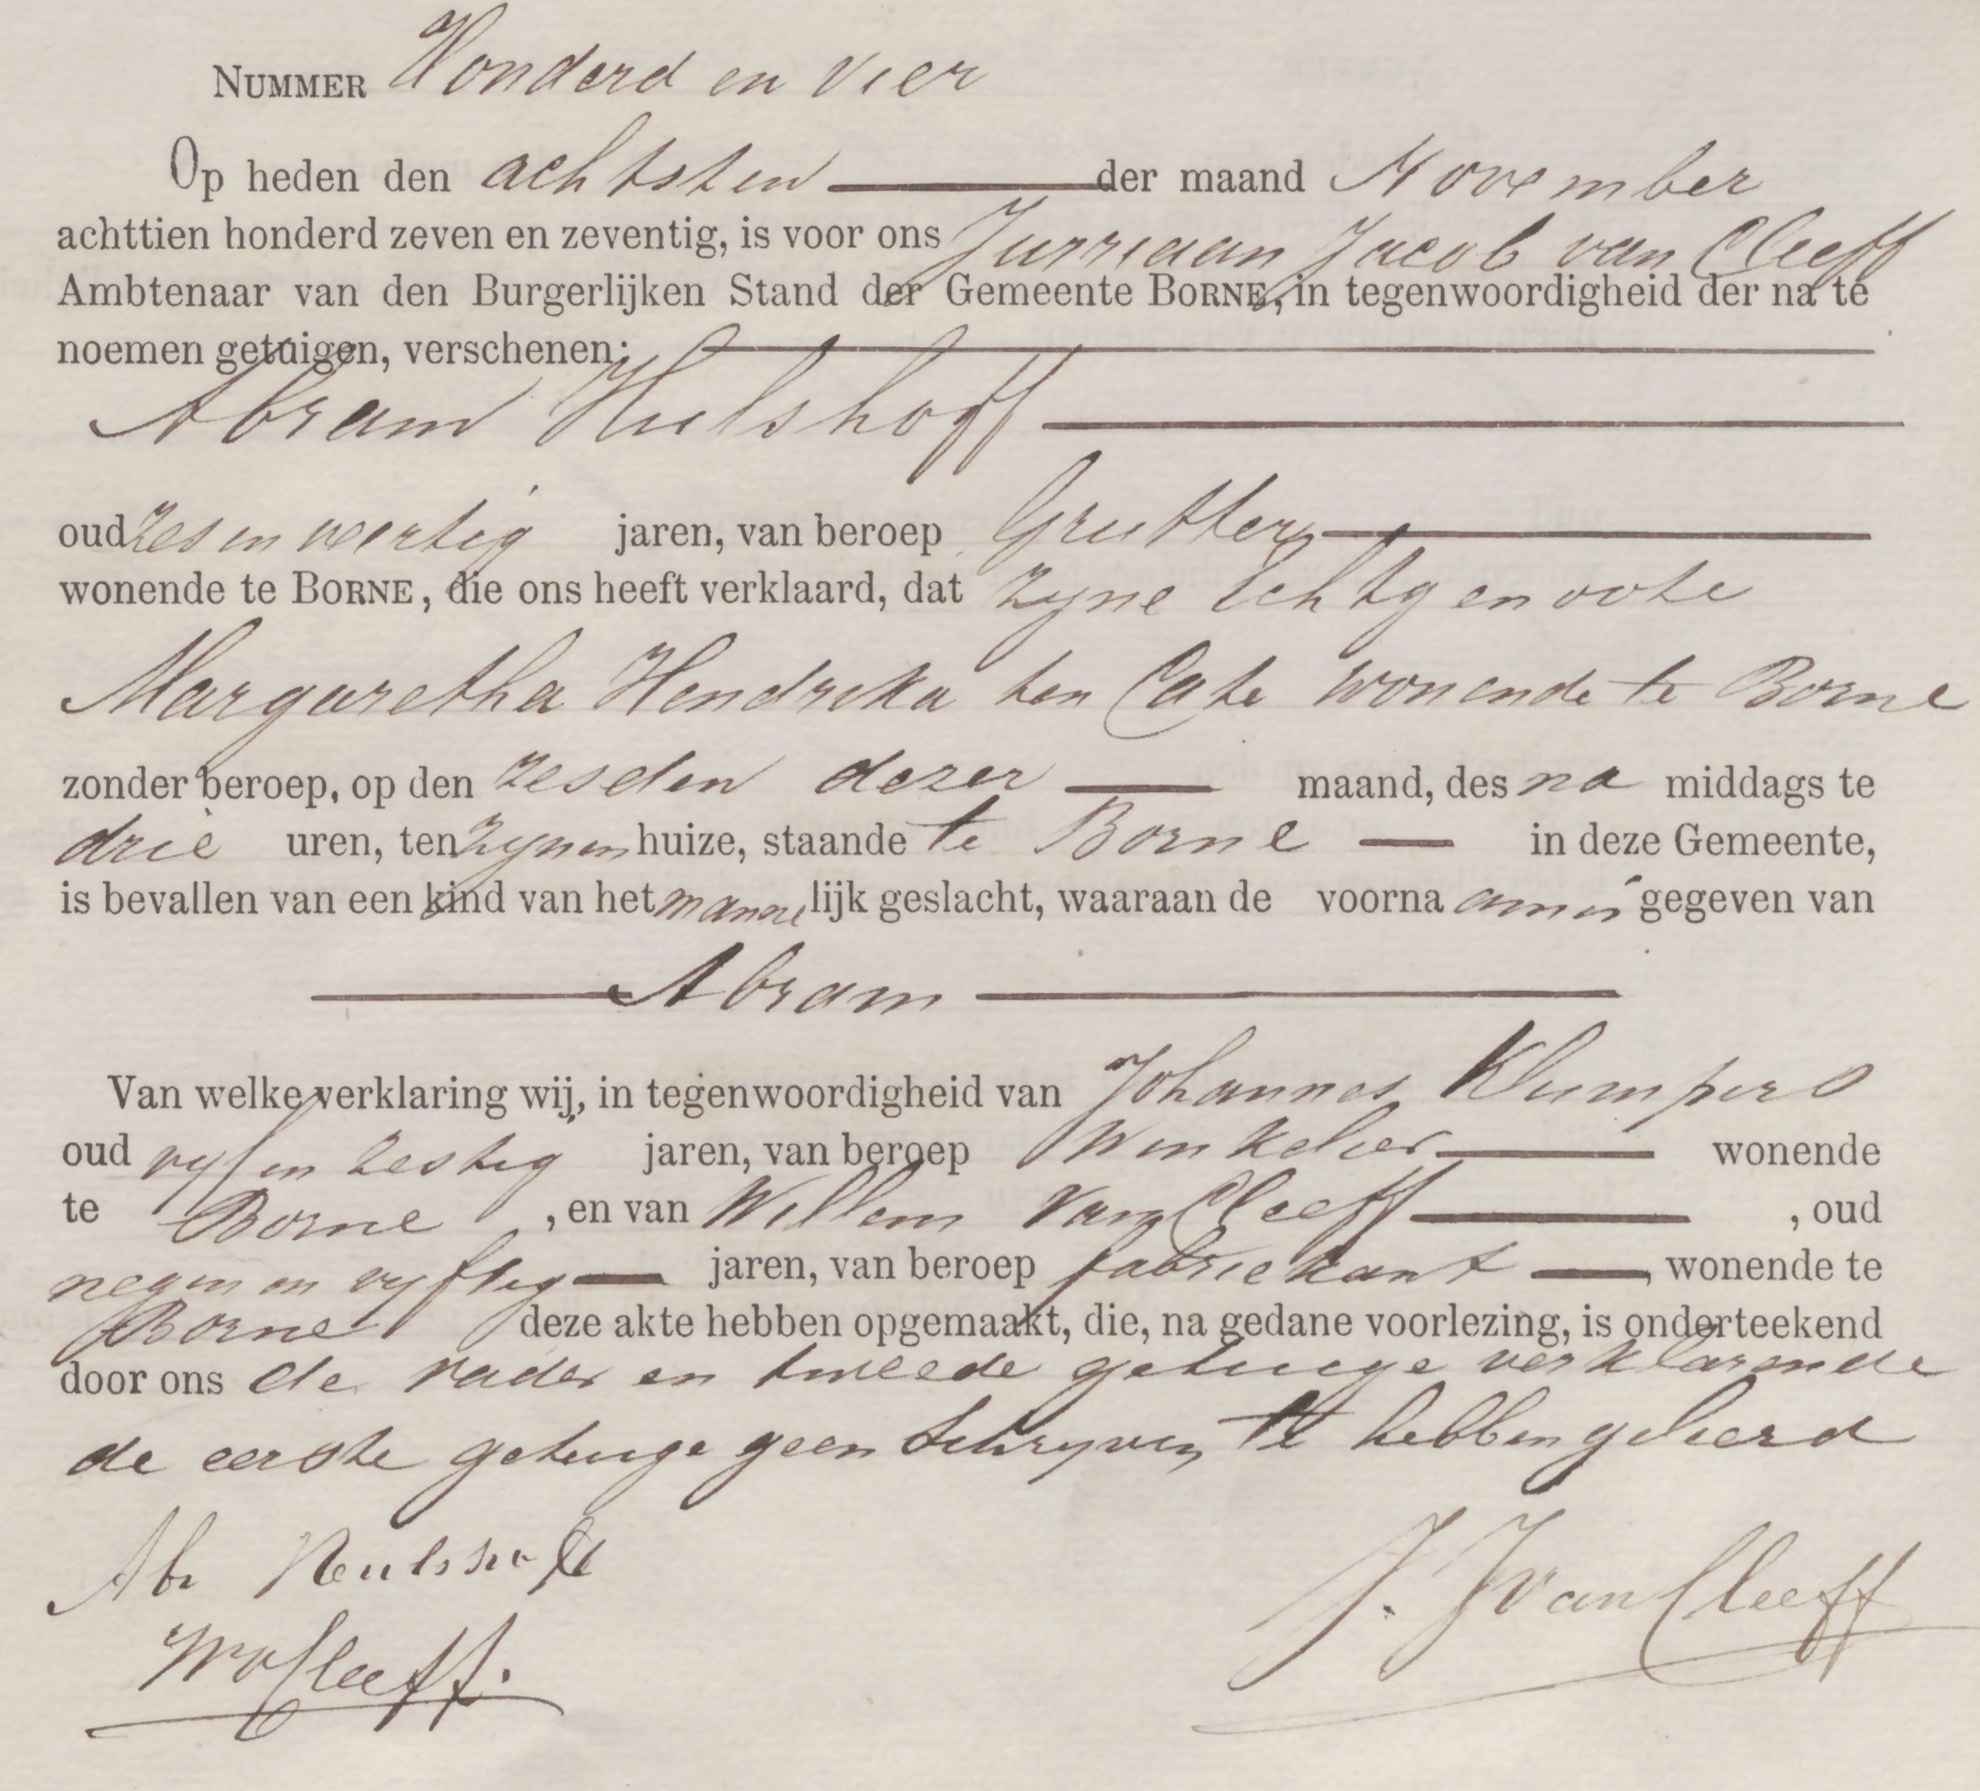 NUMMER Honderd en vier
Op heden den achtsten der maand November
achttien honderd zeven en zeventig, is voor ons Jurriaan Jacob van Cleeff
Ambtenaar van den Burgerlijken Stand der Gemeente BORNE, in tegenwoordigheid der na te
noemen getuigen, verschenen:
Abram Hulshoff
oud zes en veertig jaren, van beroep Grutter
wonende te BORNE, die ons heeft verklaard, dat zyne Echtgenoote
Margaretha Hendrika ten Cate wonende te Borne
zonder beroep, op den zesden dezer maand, des na middags te
drie uren, ten zynen huize, staande te Borne in deze Gemeente,
is bevallen van een kind van het mannelijk geslacht, waaraan de voornaam is gegeven van
Abram
Van welke verklaring wij, in tegenwoordigheid van Johannes Klumpers
oud vyf en zestig jaren, van beroep Winkelier wonende
te Borne, en van Willem van Cleeff, oud
negen en vyftig jaren, van beroep fabriekant, wonende te
Borne deze akte hebben opgemaakt, die, na gedane voorlezing, is onderteekend
door ons de vader en tweede getuige verklarende
de eerste getuige geen Schryven te hebben geleerd
Abr Hulshoff
W v Cleeff.
J. J van Cleeff